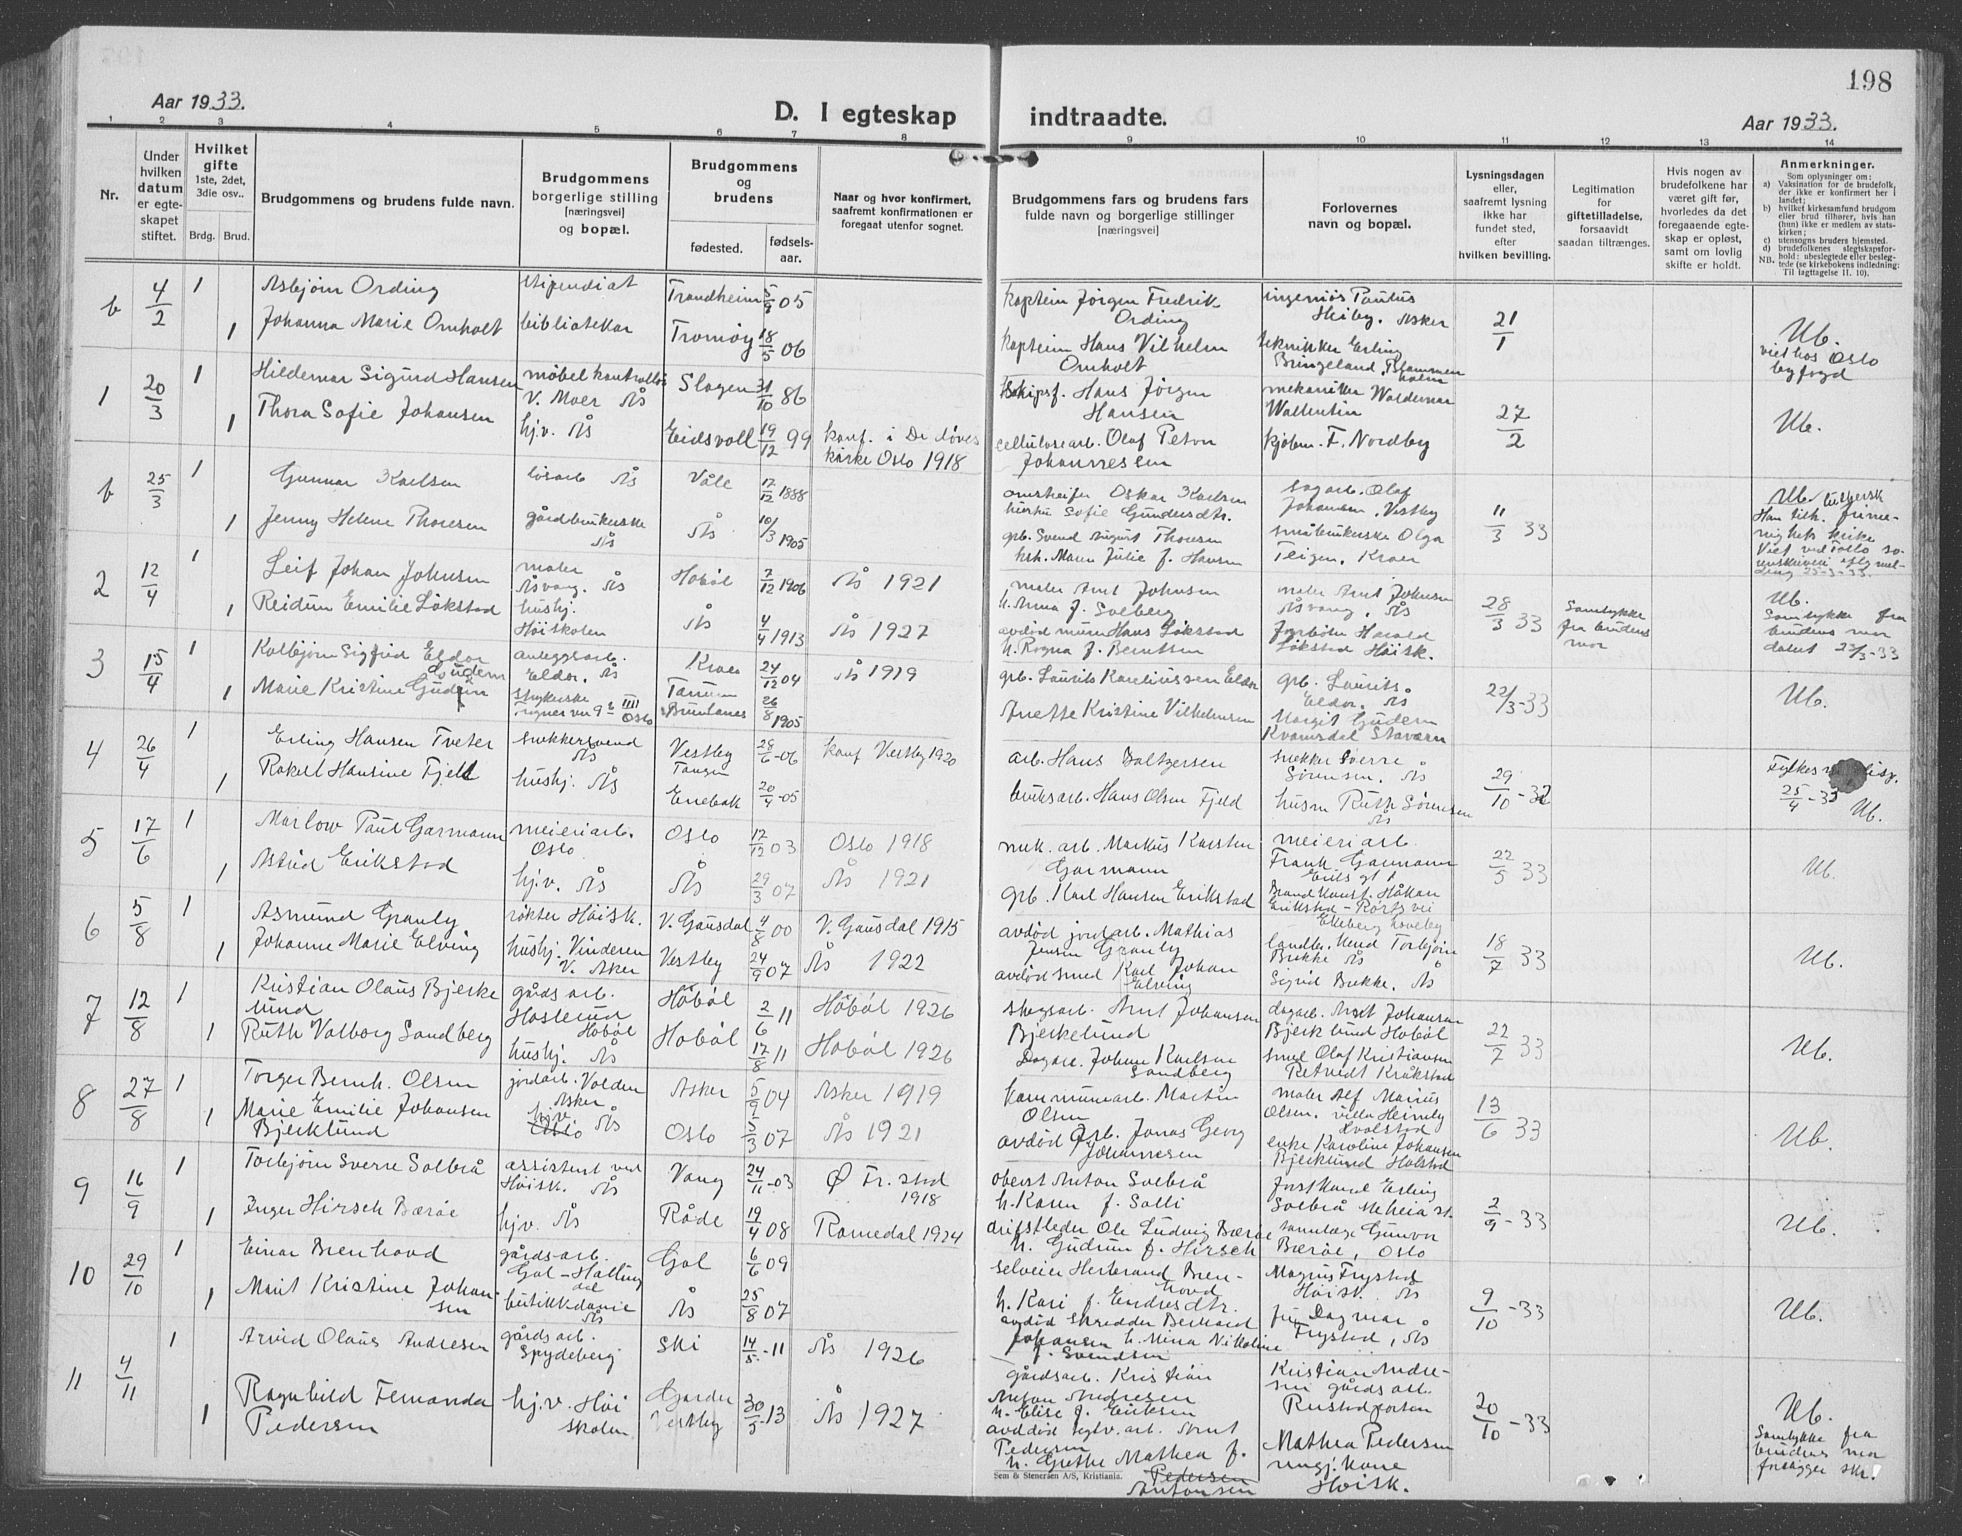 198
Aar 1933.
D. I egteskap indtraadte.
Aar 1933.
1 2 3 4 5 6 7 8 9 10 11 12 13 14
Nr.
Under hvilken datum er egteskapet stiftet.
Hvilket gifte 1ste, 2det, 3die osv..
Brdg. Brud.
Brudgommens og brudens fulde navn.
Brudgommens borgerlige stilling [næringsvei] og bopæl.
Brudgommens og brudens
fødested. fødselsaar.
Naar og hvor konfirmert, saafremt konfirmationen er foregaat utenfor sognet.
Brudgommens fars og brudens fars fulde navn og borgerlige stillinger [næringsvei]
Forlovernes navn og bopæl.
Lysningsdagen eller, saafremt lysning ikke har fundet sted, efter hvilken bevilling.
Legitimation for giftetilladelse, forsaavidt saadan tiltrænges.
Hvis nogen av brudefolkene har været gift før, hvorledes da det foregaaende egteskap er opløst, samt om lovlig skifte er holdt.
Anmerkninger.
Som oplysninger om:
a) Vaksination for de brudefolk, der ikke er konfirmert her i landet;
b) hvilket kirkesamfund brudgom eller brud tilhører, hvis han (hun) ikke er medlem av statskirken;
c) utensogns bruders hjemsted.
d) brudefolkenes slegtskapsforhold: ubeslegtede eller beslegtede (se kirkebokens indledning: Til iagttagelse 11. 10).
NB.
b 4/2 1 Asbjørn Ording stipendiat Trondheim 5/9 05
kaptein Jørgen Fredrik Ording
ingeniør Paulus Heiby. Asker
21/1
1 Johanna Marie Omholt bibliotekar Tromøy 18/5 06
kaptein Hans Vilhelm Omholt
tekniker Erling Bringeland,
Ub. viet hos Oslo byfogd
1 20/3 1 Hildemar Sigurd Hansen møbelkontrollør V. Moer Ås Slagen 31/10 86
skipsf. Hans Jørgen Hansen
mekaniker Waldemar Wallentin
27/2
1 Thora Sofie Johansen hj.v. Ås Eidsvoll 19/12 99 konf. i De døves kirke Oslo 1918
cellulosearb. Olaf Peton Johannessen
kjøbm. F. Nordby
Ub.
b 25/3 1 Gunnar Karlsen løsarb Ås Våle 17/12 1888
Oskar Karlsen
hustru Sofie Gundersdtr.
sagarb. Olaf Johansen, Vestby
11/3 33
1 Jenny Helene Thoresen gårdbrukerske Ås Ås 10/3 1905
grb. Svend August Thoresen
hh. Maren Julie f. Hansen
småbrukerske Olga Teigen, Kroer
Ub.
25-3-33.
2 12/4 1 Leif Johan Johnsen maler Åsvang, Ås Hobøl 7/12 1906 Ås 1921
maler Arnt Johnsen
h. Anna f. Solberg
maler Arnt Johnsen Åsvang, Ås
28/3 33
1 Reidun Emilie Løkstad hushj. Høiskolen Ås 4/4 1913 Ås 1927
avdød murer Hans Løkstad
h. Ragna f. Berntsen
Harald Løkstad Høisk.
Samtykke fra brudens mor
Ub. Samtykke fra brudens mor datert 22/3-33
3 15/4 1 Kolbjørn Sigfrid Eldor anleggsarb. Eldor, Ås Kroer 24/12 04 Ås 1919
grb. Laurits Kareliussen Eldor
grb. Laurits Eldor, Ås
22/3-33
1 Marie Kristine Gudem Oslo Brunlanes 26/8 1905
Anette Kristine Vilhelmsen
Margit Gudem Kvamsdal Stavern
Ub.
4 26/4 1 Erling Hansen Tveter snekkersvend Ås Vestby 28/6-06 konf Vestby 1920
arb. Hans Baltzersen
snekker Sverre Sørensen, Ås
29/10-32
1 Rakel Hansine Fjell hushj. Ås Tangen Enebak 20/4-05
bruksarb. Hans Olsen Fjeld
husm Ruth Sørensen Ås
25/4-33 Ub.
5 17/6 1 Marlow Paul Garmann meieriarb. Oslo Oslo 17/12 03 Oslo 1918
mek. arb. Markus Karsten Garmann
meieriarb Frank Garmann
22/5 33
1 Astrid Erikstad hj.v. Ås Ås 29/3 07 Ås 1921
grb. Karl Hansen Erikstad
Brandkonst. Håkon Erikstad - Kortsvei Ekeberg
Ub.
6 5/8 1 Asmund Granly røkter Høisk. V. Gausdal 4/8 00 V. Gausdal 1915
avdød jordarb. Mathias Jensen Granly
landbr. kand Torbjørn Brekke Ås
18/7 33
1 Johanne Marie Elving hushj. Vinderen V. Aker Vestby 24/9 07 Ås 1922
avdød smed Karl Johan Elving
Sigrid Brekke, Ås
Ub.
7 12/8 1 Kristian Olaus Bjerkelund gårdsarb. Haslerud Hobøl Hobøl 2/6 11 Hobøl 1926
skogsarb. Arnt Johansen Bjerkelund
dagarb. Arnt Johansen Bjerklund Hobøl
22/7 33
1 Ruth Valborg Sandberg hushj. Ås Hobøl 17/8 11 Hobøl 1926
Dagarb. Johan Karlsen Sandberg
smed Olaf Kristiansen Retvedt Kråkstad
Ub.
8 27/8 1 Torger Bernh. Olsen jordarb. Volden Asker Asker 5/9 04 Asker 1919
kommunearb. Martin Olsen
maler Alf Marius Olsen, villa Heimly Hvalstad
13/6 33
1 Marie Emilie Johansen Bjerklund hjv. Ås Oslo 5/3 07 Ås 1921
avdød grb. Jonas Georg Johannesen
enke Karoline Johansen Bjerklund Holstad
Ub.
9 16/9 1 Torbjørn Sverre Solbrå assistent ved Høisk. Ås Vang 24/11-03 Ø Fr.stad 1918
oberst Anton Solbrå
h. Karen f. Solli
forstkand Erling Solbrå
2/9-33
1 Inger Hirsch Bærøe hj.v. Ås Råde 19/4 08 Romedal 1924
driftsleder Ole Ludvig Bærøe
h. Gudrun f. Hirsch
tannlæge Gunvor Bærøe, Oslo
Ub.
10 29/10 1 Einar Brenhovd gårdsarb. Gol-Hallingdal Gol 6/6 09
selveier Herbrand Brenhovd
h. Kari f. Endresdtr.
Magnus Frystad Høisk. Ås
9/10-33
1 Marit Kristine Johansen butikkdame Ås Ås 25/8 07
avdød skredder Berhard Johansen h. Mina Nikoline f. Svendsen
fru Dagmar Frystad, Ås
Ub.
11 4/11 1 Arvid Olaus Andresen gårdsarb. Spydeberg Ski 14/5-11 Ås 1926
gårdsarb. Kristian Anton Andresen
h. Elise f. Eriksen
Kristian Andresen gårdsarb. Rustadporten
20/10-33
1 Ragnhild Fernanda Pedersen hj.v. Høiskolen Garder Vestby 30/5-13 Ås 1927
avdød teglv. arb. Arnt Pedersen
h. Grethe Mathea f. Pedersen Antonsen
Mathea Pedersen rengj. kone Høisk.
Ub. Samtykke fra brudens mor foreligger skr.
Sem & Stenersen A/S, Kristiania.